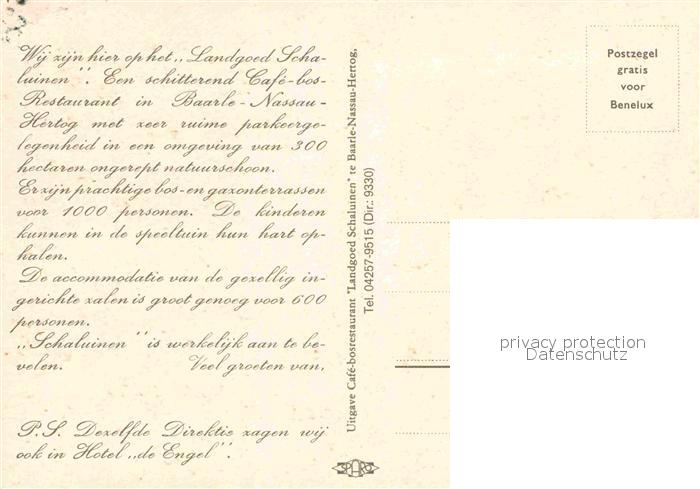 Wij zijn hier op het „Landgoed Scha-
luinen". Een schitterend Café-bos-
Restaurant in Baarle-Nassau-
Hertog met zeer ruime parkeerge-
legenheid in een omgeving van 300
hectaren ongerept natuurschoon.
Er zijn prachtige bos- en gazonterrassen
voor 1000 personen. De kinderen
kunnen in de speeltuin hun hart op-
halen.
De accommodatie van de gezellig in-
gerichte zalen is groot genoeg voor 600
personen.
„Schaluinen" is werkelijk aan te be-
velen. Veel groeten van,
P.S. Dezelfde Direktie zagen wij
ook in Hotel „de Engel".
Uitgave Café-bosrestaurant "Landgoed Schaluinen" te Baarle-Nassau-Hertog,
Tel. 04257-9515 (Dir.: 9330)
SPARO
Postzegel
gratis
voor
Benelux
privacy protection
Datenschutz